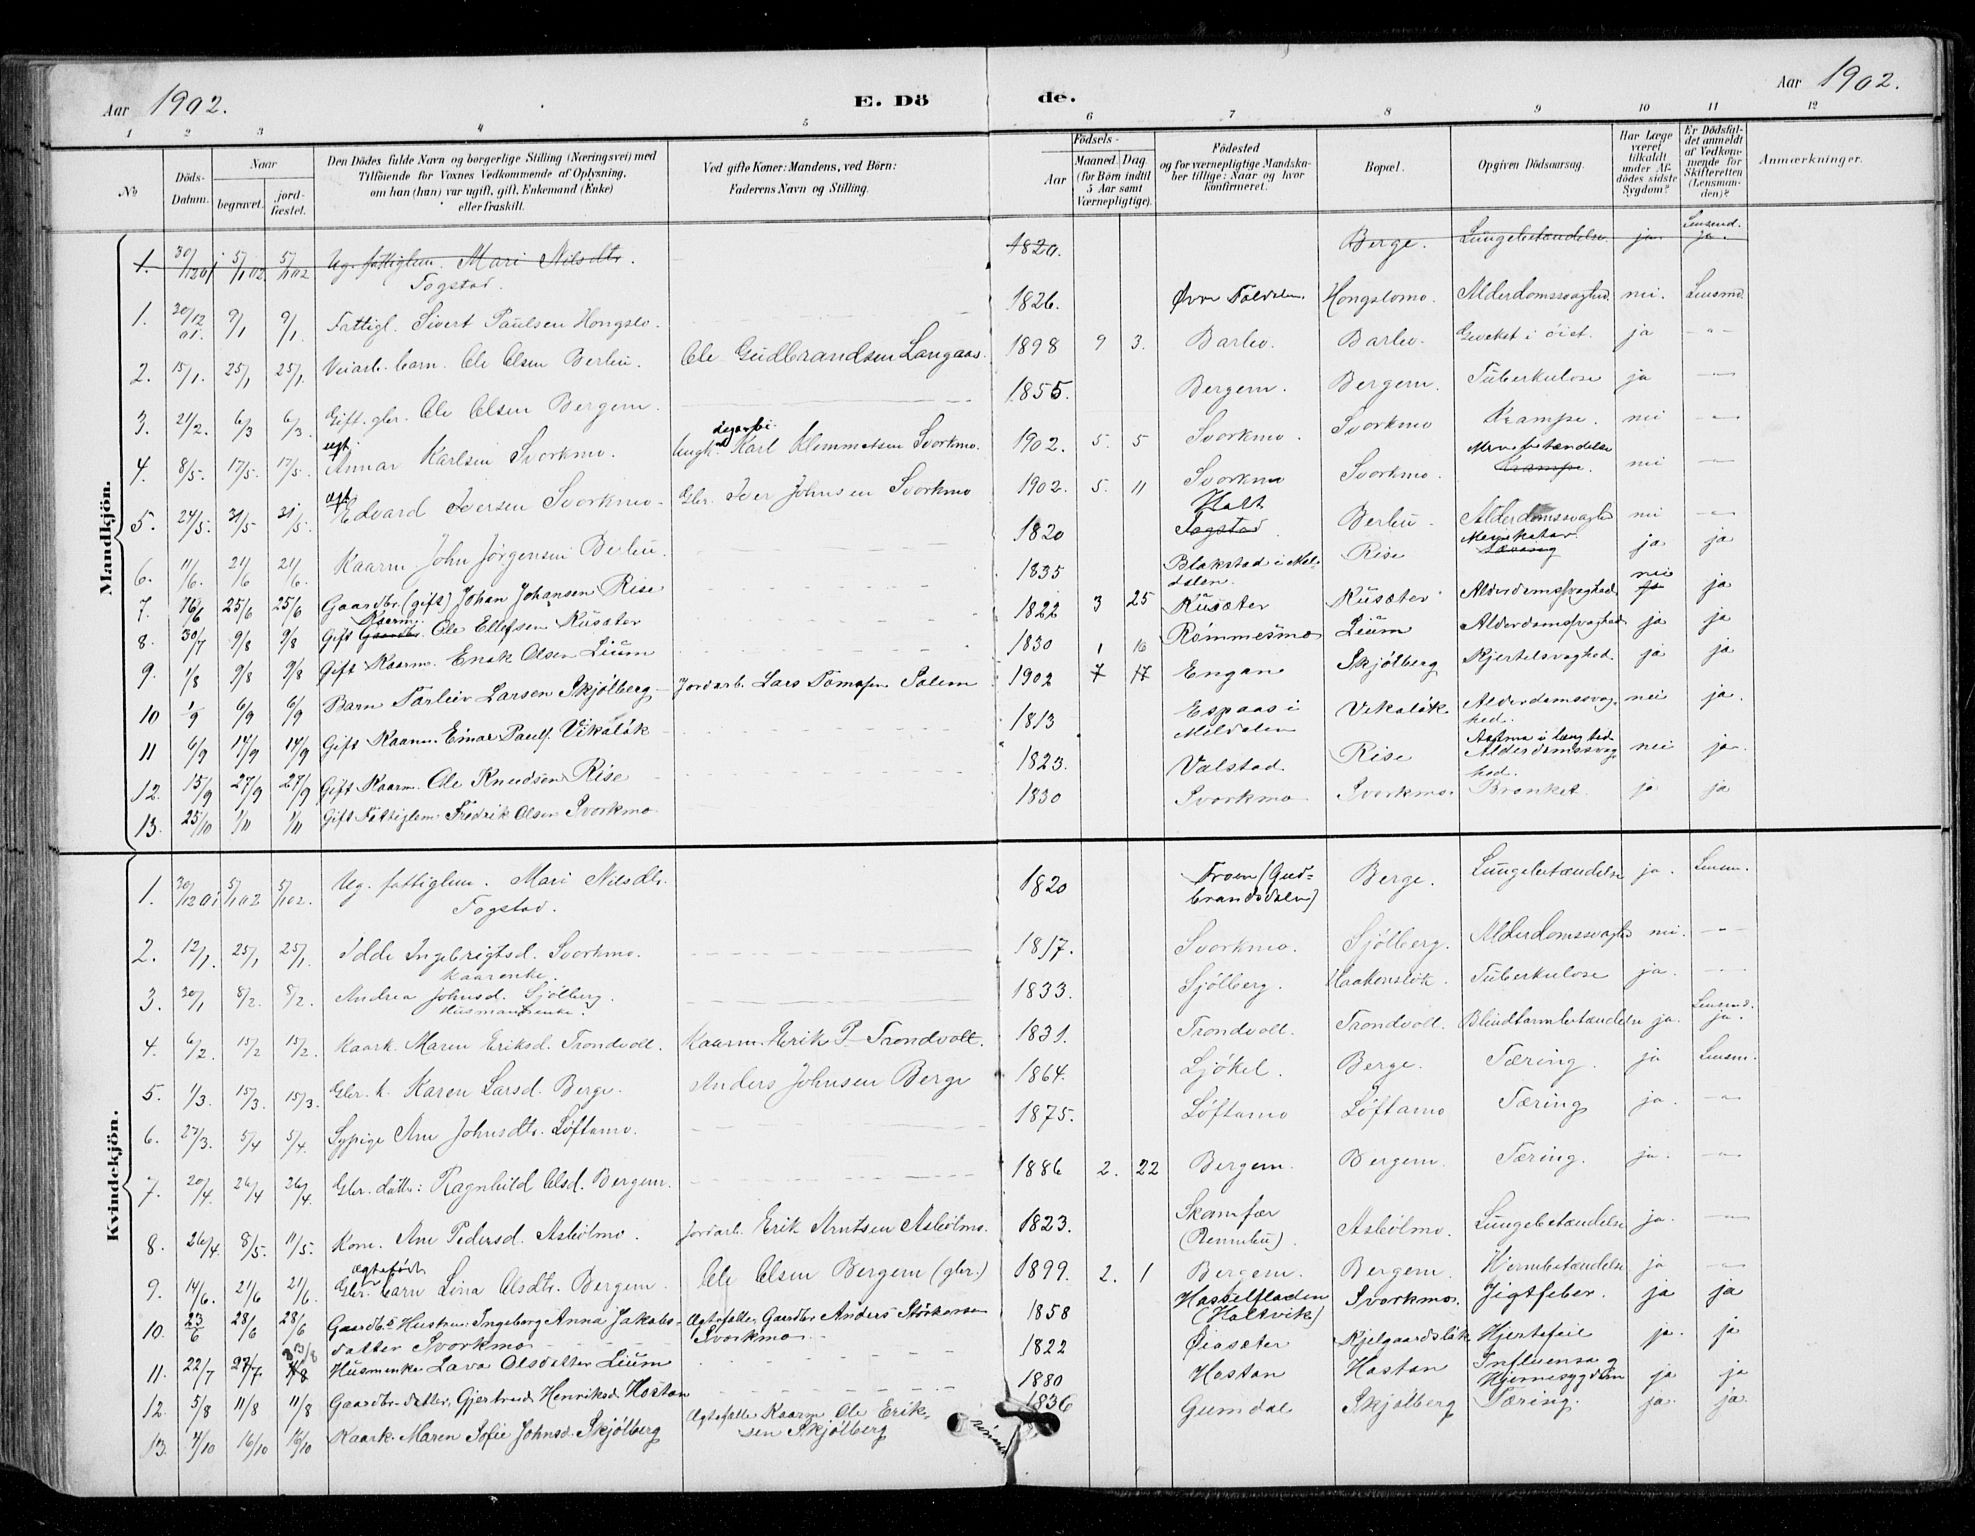 Aar 1902.
E. Dö
de.
Aar 1902.
1 2 3 4 5 6 7 8 9 10 11 12
No
Döds-
Datum.
Naar
begravet.
jord-
fæstet.
Den Dödes fulde Navn og borgerlige Stilling (Næringsvei) med
Tilföiende for Voxnes Vedkommende af Oplysning,
om han (hun) var ugift, gift, Enkemand (Enke)
eller fraskilt.
Ved gifte Koner: Mandens, ved Börn:
Faderens Navn og Stilling.
Födsels-
Aar
Maaned. Dag.
(for Börn indtil
5 Aar samt
Værnepligtige).
Födested
og for værnepligtige Mandska-
ber tillige: Naar og hvor
konfirmeret.
Bopæl.
Opgiven Dödsaarsag.
Har Læge
været
tilkaldt
under Af-
dödes sidste
Sygdom?
Er Dödsfal-
det anmeldt
af Vedkom-
mende for
Skifteretten
(Lensman-
den)?
Anmærkninger.
Mandkjön.
1. 30/12 01 5/1 02 5/1 02 Ug. fattiglem. Mari Nilsdtr. 1820. Berge. Lungebetændelse. ja. Lensmd. ja.
Fogstad.
1. 30/12 01. 9/1 9/1. Fattigl. Sivert Paulsen Hongslo. 1826. Øvre Foldalen. Hongslomo. Alderdomssvaghed. nei. Lensmd.
2. 15/1. 25/1 25/1. Veiarb. barn. Ole Olsen Berlíu. Ole Gudbrandsen Langaas. 1898 9 3. Barlíu. Barlíu. ja -"-
3. 21/2. 6/3 6/3. Gift. gbr. Ole Olsen Bergem. 1855. Bergem. Bergem. Tuberkulose ja -"-
4. 8/5. 17/5. 17/5. Annar Karlsen Svorkmo. Karl Klemmetsen Svorkmo. 1902. 5. 5 Svorkmo. Svorkmo Krampe. nei -"-
5. 24/5. 31/5 31/5. Edvard Iversen Svorkmo. Gbr. Iver Johnsen Svorkmo 1902. 5. 11 Svorkmo Svorkmo. Krampe. nei -"-
6. 11/6. 21/6 21/6. Kaarm. John Jörgensen Berliu. 1820 Holt Fogstad. Berliu. Alderdomssvaghed nei -"-
7. 16/6 25/6 25/6 Gaardbr. (gift) Johan Johansen Rise 1835 Blakstad i Mel-
dalen. Rise ja ja
8. 30/7 9/8 9/8 Gift Kaarm. Ole Ellefsen Kusæter 1822 3 25 Kusæter Kusæter Alderdomssvaghed nei ja
9. 1/8 9/8 9/8 Gift Kaarm. Enok Olsen Lium 1830 1 16 Rømmesmo Lium Alderdomssvaghed ja ja
10 1/9 6/9 6/9 Barn Torleiv Larsen Skjølberg Jordarb. Lars Tomasen Solem 1902 7 17 Engan Skjølberg Hjertesvaghed. ja ja
11 6/9 14/9 14/9 Gift Kaarm. Einar Pauls. Vikaløk 1813 Espaas i
Meldalen Vikaløk. Alderdomssvag-
hed. nei ja.
12. 15/9 27/9 27/9 Gift Kaarm. Ole Knudsen Rise 1823. Valstad. Rise Astma i lang tid
Alderdomssvag-
hed. nei ja.
13. 25/10 1/11 1/11 Gift Fattiglem Fredrik Olsen Svorkmo 1830 Svorkmo Svorkmo. Bronket. ja ja
Kvindekjön.
1. 30/12 01 5/1 02 5/1 02. Ug. fattiglem. Mari Nilsdtr. 1820 Froen (Gud-
brandsdalen) Berge. Lungebetændelse ja. Lensm.
Fogstad.
2. 12/1. 25/1 25/1. Ildde Ingebrigtsd. Svorkmo. 1817. Svorkmo. Sjölberg. Alderdomssvaghed nei. -"-
Kaarenke.
3. 30/1 8/2. 8/2. Andrea Johnsd. Sjölberg. 1833. Sjölberg. Haakensløk. Tuberkulose ja. -"-
Husmandsenke.
4. 6/2. 15/2 15/2. Kaark. Maren Eriksd. Trondvolt. Kaarm. Erik P. Trondvolt. 1831. Trondvolt. Trondvolt. Blindtarmbetændelse ja. Lensmd. ja.
5. 1/3. 15/3. 15/3. Gbr. k. Karen Larsd. Berge. Anders Johnsen Berge 1864. Ljøkel. Berge. Tæring. ja Lensm.
6. 27/3. 5/4 5/4. Sypige Ane Johnsdtr. Løftamo. 1875. Løftamo Løftamo Tæring ja. -"-
7. 20/4. 26/4 26/4. Gbr. datter: Ragnhild Olsd. Bergem. 1886 2. 22 Bergem. Bergem. Tæring. ja. -"-
8. 26/4. 8/5. 11/5. Kone. Ane Pedersd. Asbölmo. Jordarb. Erik Arntsen Asbölmo. 1823. Skamfær
(Rennebu). Asbölmo. Lungebetændelse ja. -"-
9. 14/6. 21/6 21/6. ægtefødt
Gbr. barn Lina Olsdtr. Bergem. Ole Olsen Bergem (gbr.) 1899. 2. 1 Bergem. Bergem. Hjernebetændelse ja -"-
10. 23/6 28/6 28/6 Gaardbr. Hustru Ingeborg Anna Jakobs-
datter Svorkmo Ægtefælle, Gaardbr. Anders Størkersen
Svorkmo 1858 Hasselfladen
(Holtvik) Svorkmo. Gigtfeber. ja ja
11. 22/7 27/7. 3/8 Husmenke Lava Olsdatter Lium 1822 Øiasæter Kjelgaardsløk Hjertefeil ja. ja
12. 5/8 11/8 11/8 Gaardbr. datter, Gjertrud Henriksd. Hostan 1880 Hostan Hostan Influensa og
Hjernesygdom ja ja
13. 7/10 16/10 16/10 Kaark. Maren Sofie Johnsd. Skjølberg Ægtefælle Kaarm. Ole Erik-
sen Skjølberg 1836 Gumdal Skjølberg Tæring. ja. ja.